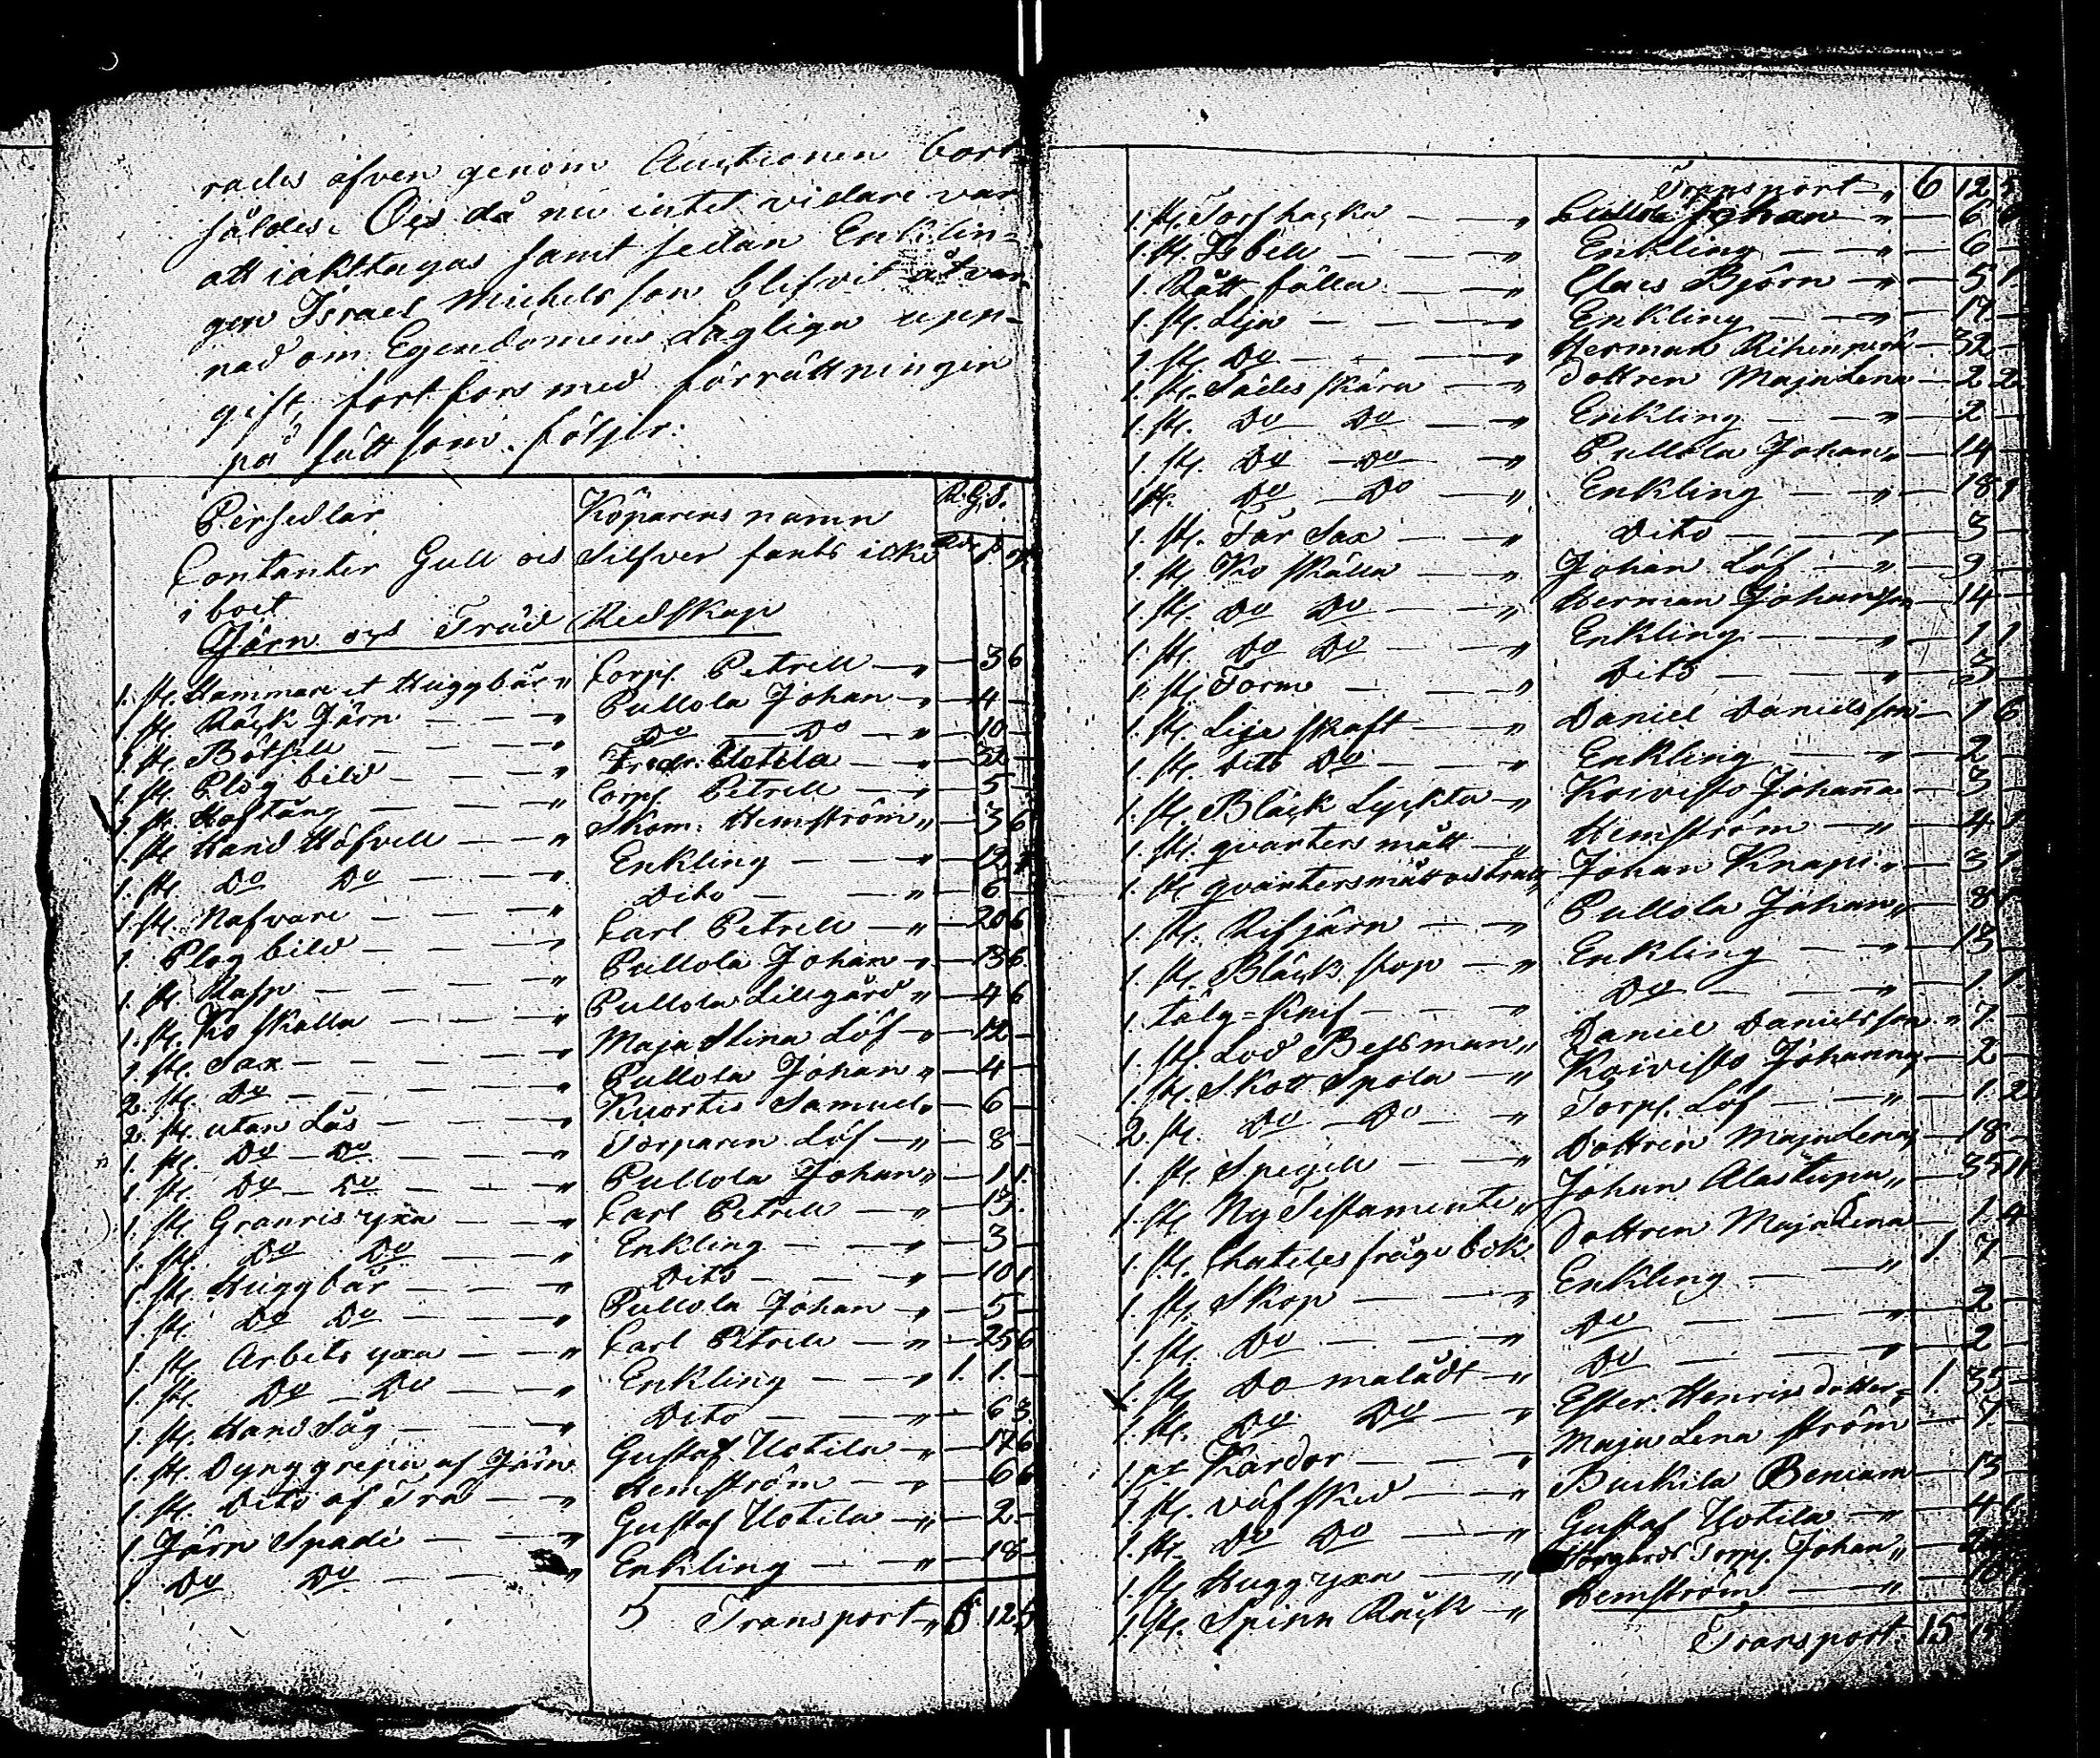 rades äfven genom Auctionen bort-
såldes. Och då nu intet vidare var
att iakttagas samt sedan Enklin-
gen Israel Michelsson blifvit åtvar-
nad om Egendomens Lagliga upp-
gift, fortfors med förrättningen
på sätt som följer.
Persedlar Köparens namn R. G. S.
Contanter Gull och Silfver fants icke
i boet
Järn och Träd Redskap
1. st. Hammare et Huggbår " Corpl. Petrell — " — 3 6
1. st. Räck Järn — — " Pullola Johan — " — 4 —
1. st. Böthill — — " Do — Do — " — 10 —
1. st. Plog bild — — " Fredr. Uotila — " — 32 —
1. st. Hoftång — — " Corpl. Petrell — " — 5 —
1. st. Hand Höfvell — — " Skom: Hemström " — 3 6
1. st. Do Do — — " Enkling — — " — 12
1. st. Nafvare — — " Dito — — " — 6 —
1. Plog bild — — " Carl Petrell — " — 20 6
1. st. Rasp — — " Pullola Johan — " — 13 6
1. st. Ko skälla — — " Pullola Lillgård " — 4 6
1. st. Sax — — " Maja Stina Löf — " — 12 —
2. st. Do — — " Pullola Johan " — 4 —
2. st. utan Lås — — " Kuortis Samuel " — 6 —
1. st. Do — Do — — " Torparen Löf — " — 8 —
1. st. Do — Do — — " Pullola Johan " — 1 1
1. st. Granris yxa — — " Carl Petrell — " — 13
1. st. Do Do — — " Enkling — — " — 3 —
1. st. Huggbår — — " Dito — — " — 10 1
1. st. Do Do — — " Pullola Johan — " — 5 —
1. st. Arbets yxa — — " Carl Petrell — " — 25 6
1. st. Do — Do — — " Enkling — — " 1. 1. —
1. st. Hand Såg — — " Dito — — " — 6 3
1. st. Dynggrepa af Järn Gustaf Uotila — " — 17 6
1. st. Dito af Trä — — " Hemström — — " — 6 6
1. Järn Spade — — " Gustaf Uotila — " — 2 —
1. Do Do — — " Enkling — — " — 18 —
Transport " 6 12 5
Transport " 6 12 5
1. st. Torfhacka — — " Pullola Johan — " — 6
1. st. Isbill — — " Enkling — — " — 6 —
1. Rått fälla — — " Claes Björn — " — 5 1
1. st. Lja — — " Enkling — — " — 17 —
1. st. Do — — " Herman — 32 —
1. st. Sädes skära — — " Dottren Maja Lena — 2 2
1. st. Do Do — " Enkling — — " — 2 —
1. st. Do — Do — " Pullola Johan " — 14 —
1. st. Do — Do — " Enkling — — " — 18 1
1. st. Får Sax — — " Dito — — " — 3 —
1. st. Ko skälla — — " Johan Löf — " — 9 —
1. st. Do Do — — " Herman Johansson — 14 —
1. st. Do Do — — " Enkling — — " — 1 1
1. st. Form — — " Dito — — " — 3 —
1. st. Lije skaft — — " Daniel Danielsson — 1 6
1. st. dito Do — — " Enkling — — " — 2 —
1. st. Bläck Lyckta — " Koivisto Johanna — 3 —
1. st. qvarters mått — " Hemström — " — 4
1. st. qvartersmått och tratt " Johan Knapi " — 3 1
1. st. Rifjärn — — " Pullola Johan " — 8
1. st. Bläck stop — " Enkling — — " — 13 —
1. Tälg=knif — — " Do — — " — 1 1
1. st. Lod Bessman " Daniel Danielsson " 7 —
1. st. Skott Spola — " Koivisto Johanna — 2 —
2. st. Do — Do — " Torp. Löf — — " — 1 2
1. st. Spegell — — " Dottren Maja Lena — 18 —
1. st. Ny Testamente " Johan Alastupa " — 35 11
1. st. frågebok Dottren Maja Lena — 1 4
1. st. Skop — — " Enkling — — " 1 7 —
1. st. Do — — " Do — — " — 2 —
1. st. Do målådt — " Do — — " — 2 —
1. st. Do Do — " Ester Henrics dotter " 1. 35 —
1. pr Kardor — — " Maja Lena Ström — 7
1. st. väfsked — — " Benjam — 13 —
1. st. Do Do — — " Gustaf Uotila — " — 4 6
1. st. Hugg yxa — — " Torp. Johan "
1. st. Spinn Räck — " Hemström — — "
Transport 15